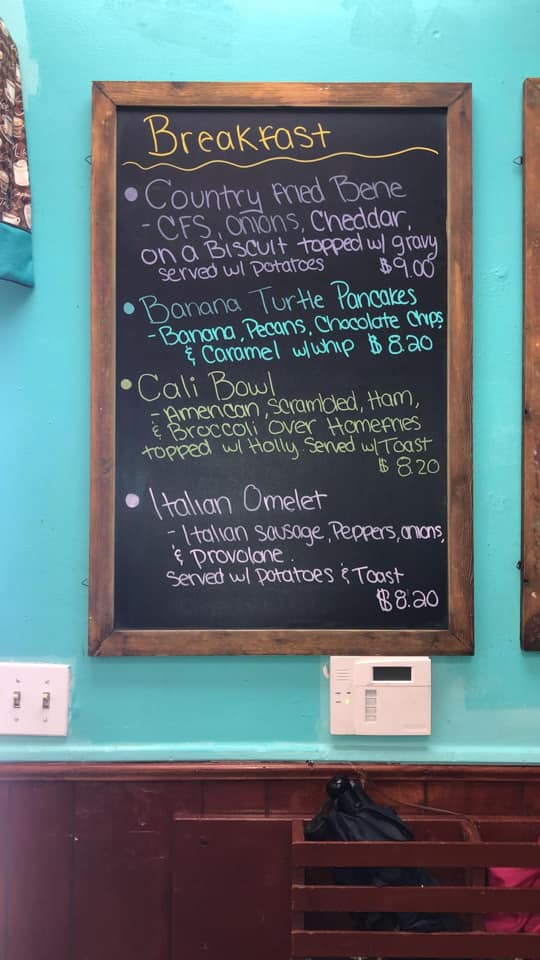 Breakfast
• Country Fried Bene
- CFS, onions, Cheddar,
on a Biscuit topped w/ gravy
served w/ Potatoes $9.00
• Banana Turtle Pancakes
- Banana, Pecans, Chocolate Chips,
& Caramel w/whip $8.20
• Cali Bowl
- American, Scrambled, Ham,
& Broccoli over Homefries
topped w/ Holly. Served w/ Toast
$8.20
• Italian Omelet
- Italian sausage, Peppers, onions,
& Provolone.
Served w/ Potatoes & Toast
$8.20